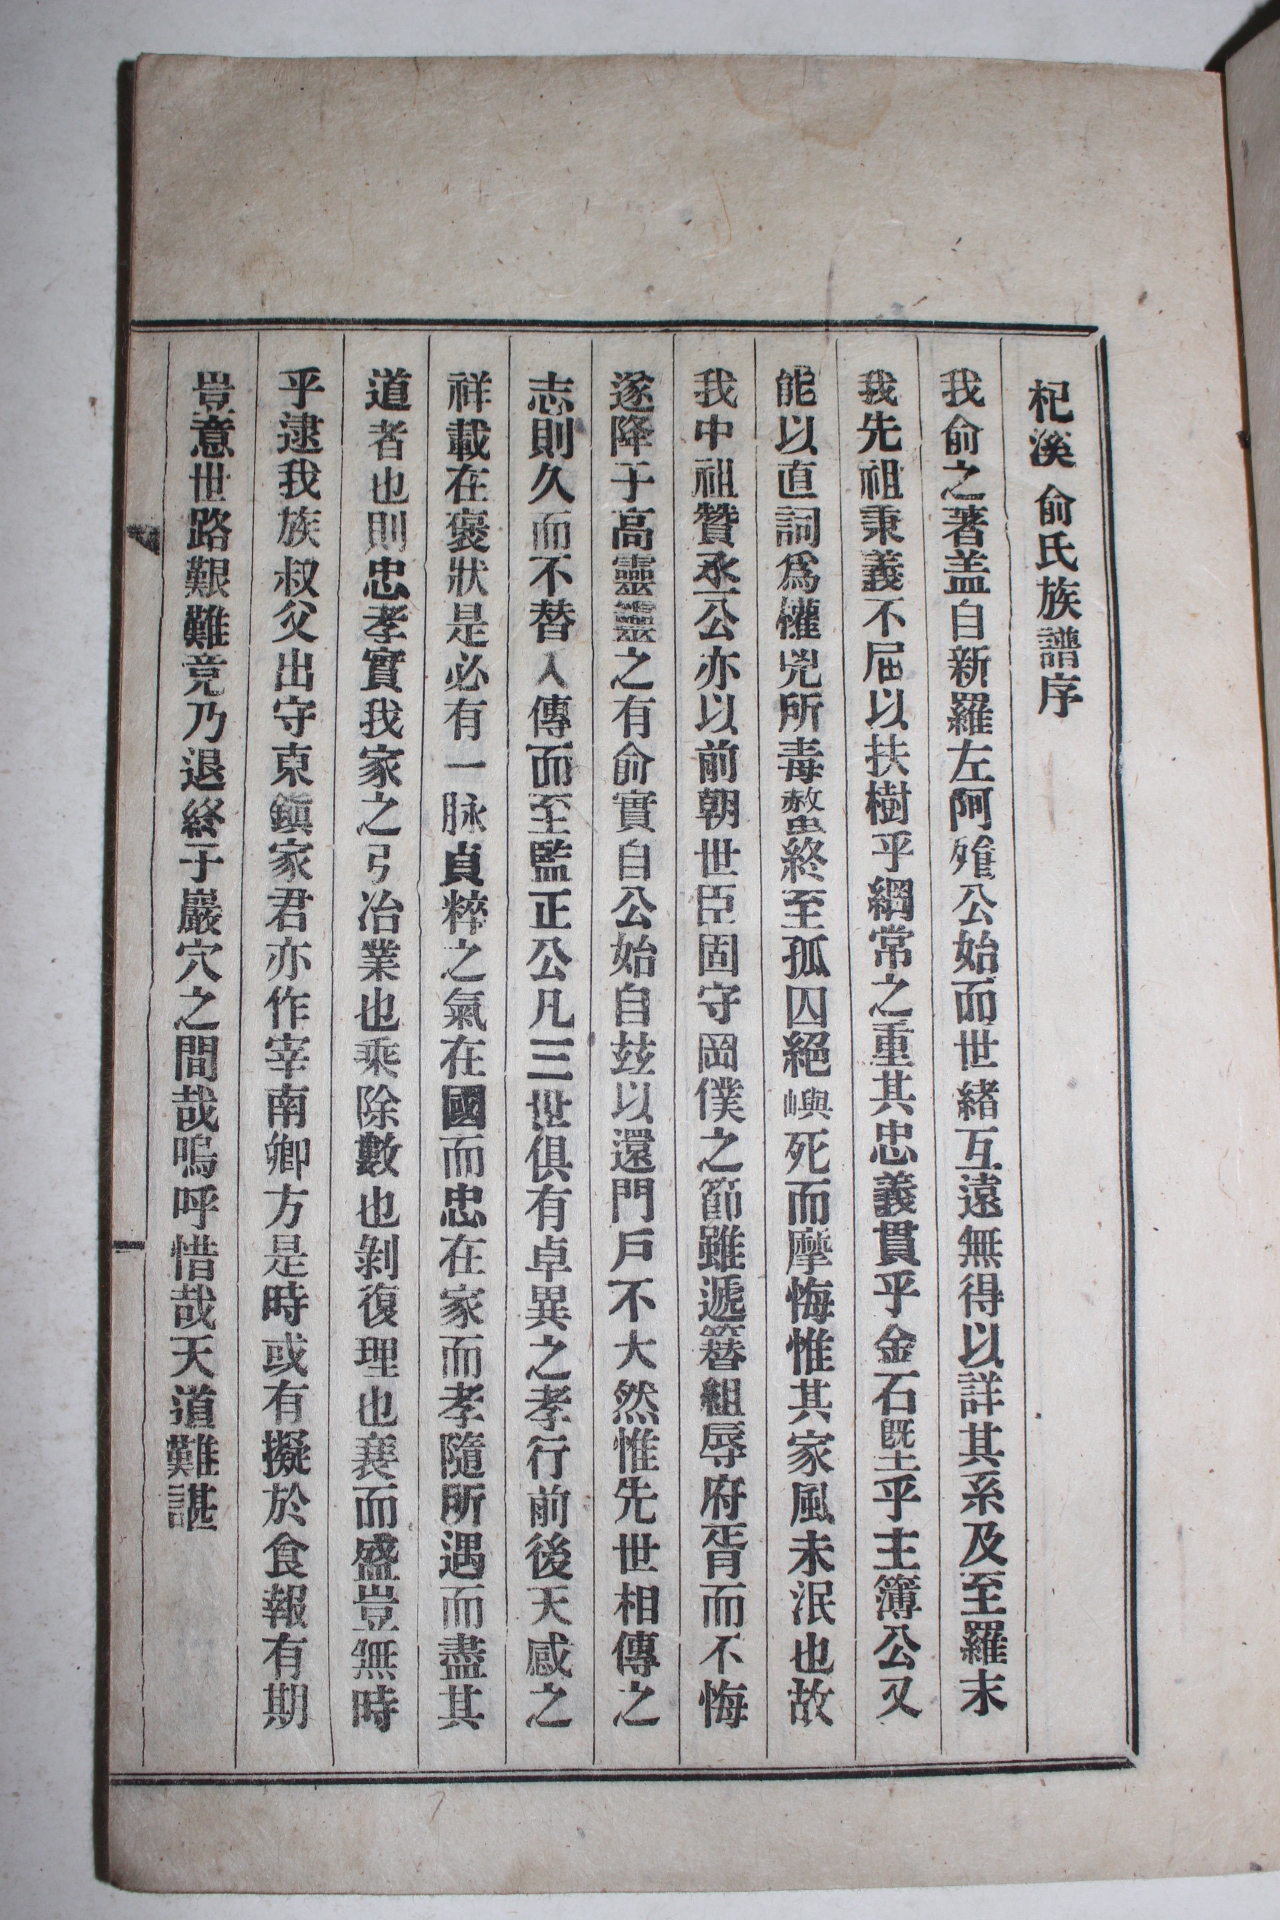 杞溪俞氏族譜序
我俞之著盖自新羅左阿飱公始而世緖互遠無得以詳其系及至羅末
我先祖秉義不屈以扶樹乎綱常之重其忠義貫乎金石旣生乎主簿公又
能以直詞爲權兇所毒螫終至孤囚絕嶼死而靡悔惟其家風未泯也故
我中祖贊丞公亦以前朝世臣固守罔僕之節雖遞簪組辱府胥而不悔
遂降于高靈靈之有俞實自公始自玆以還門戶不大然惟先世相傳之
志則久而不替入傳而至監正公凡三世俱有卓異之孝行前後天感之
祥載在褒狀是必有一脉貞粹之氣在國而忠在家而孝隨所遇而盡其
道者也則忠孝實我家之弓冶業也乘除數也剝復理也衰而盛豈無時
乎逮我族叔父出守東鎭家君亦作宰南鄕方是時或有擬於食報有期
豈意世路艱難竟乃退終于巖穴之間哉嗚呼惜哉天道難諶